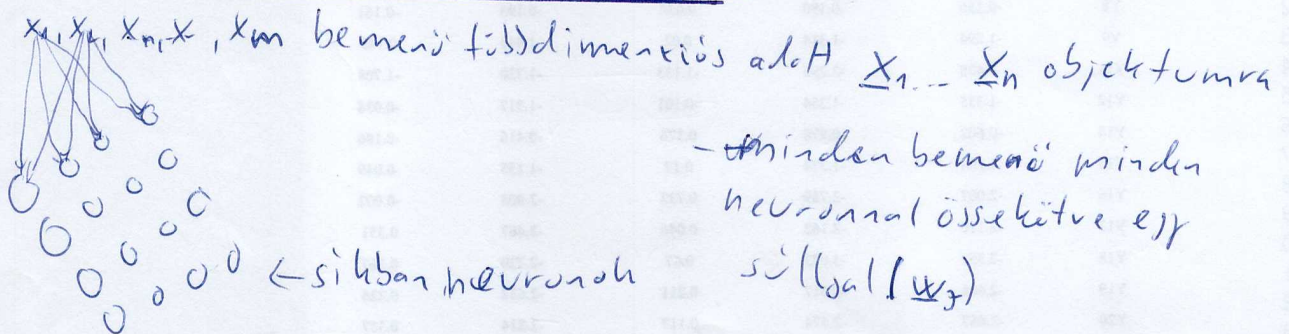 x₁, x₂, xₙ, x , xₘ bemenő többdimenziós adott X₁ ... Xₙ objektumra
- minden bemenő minden
neuronnal össekötve egy
súllyal (w_j)
← síkban neuronok